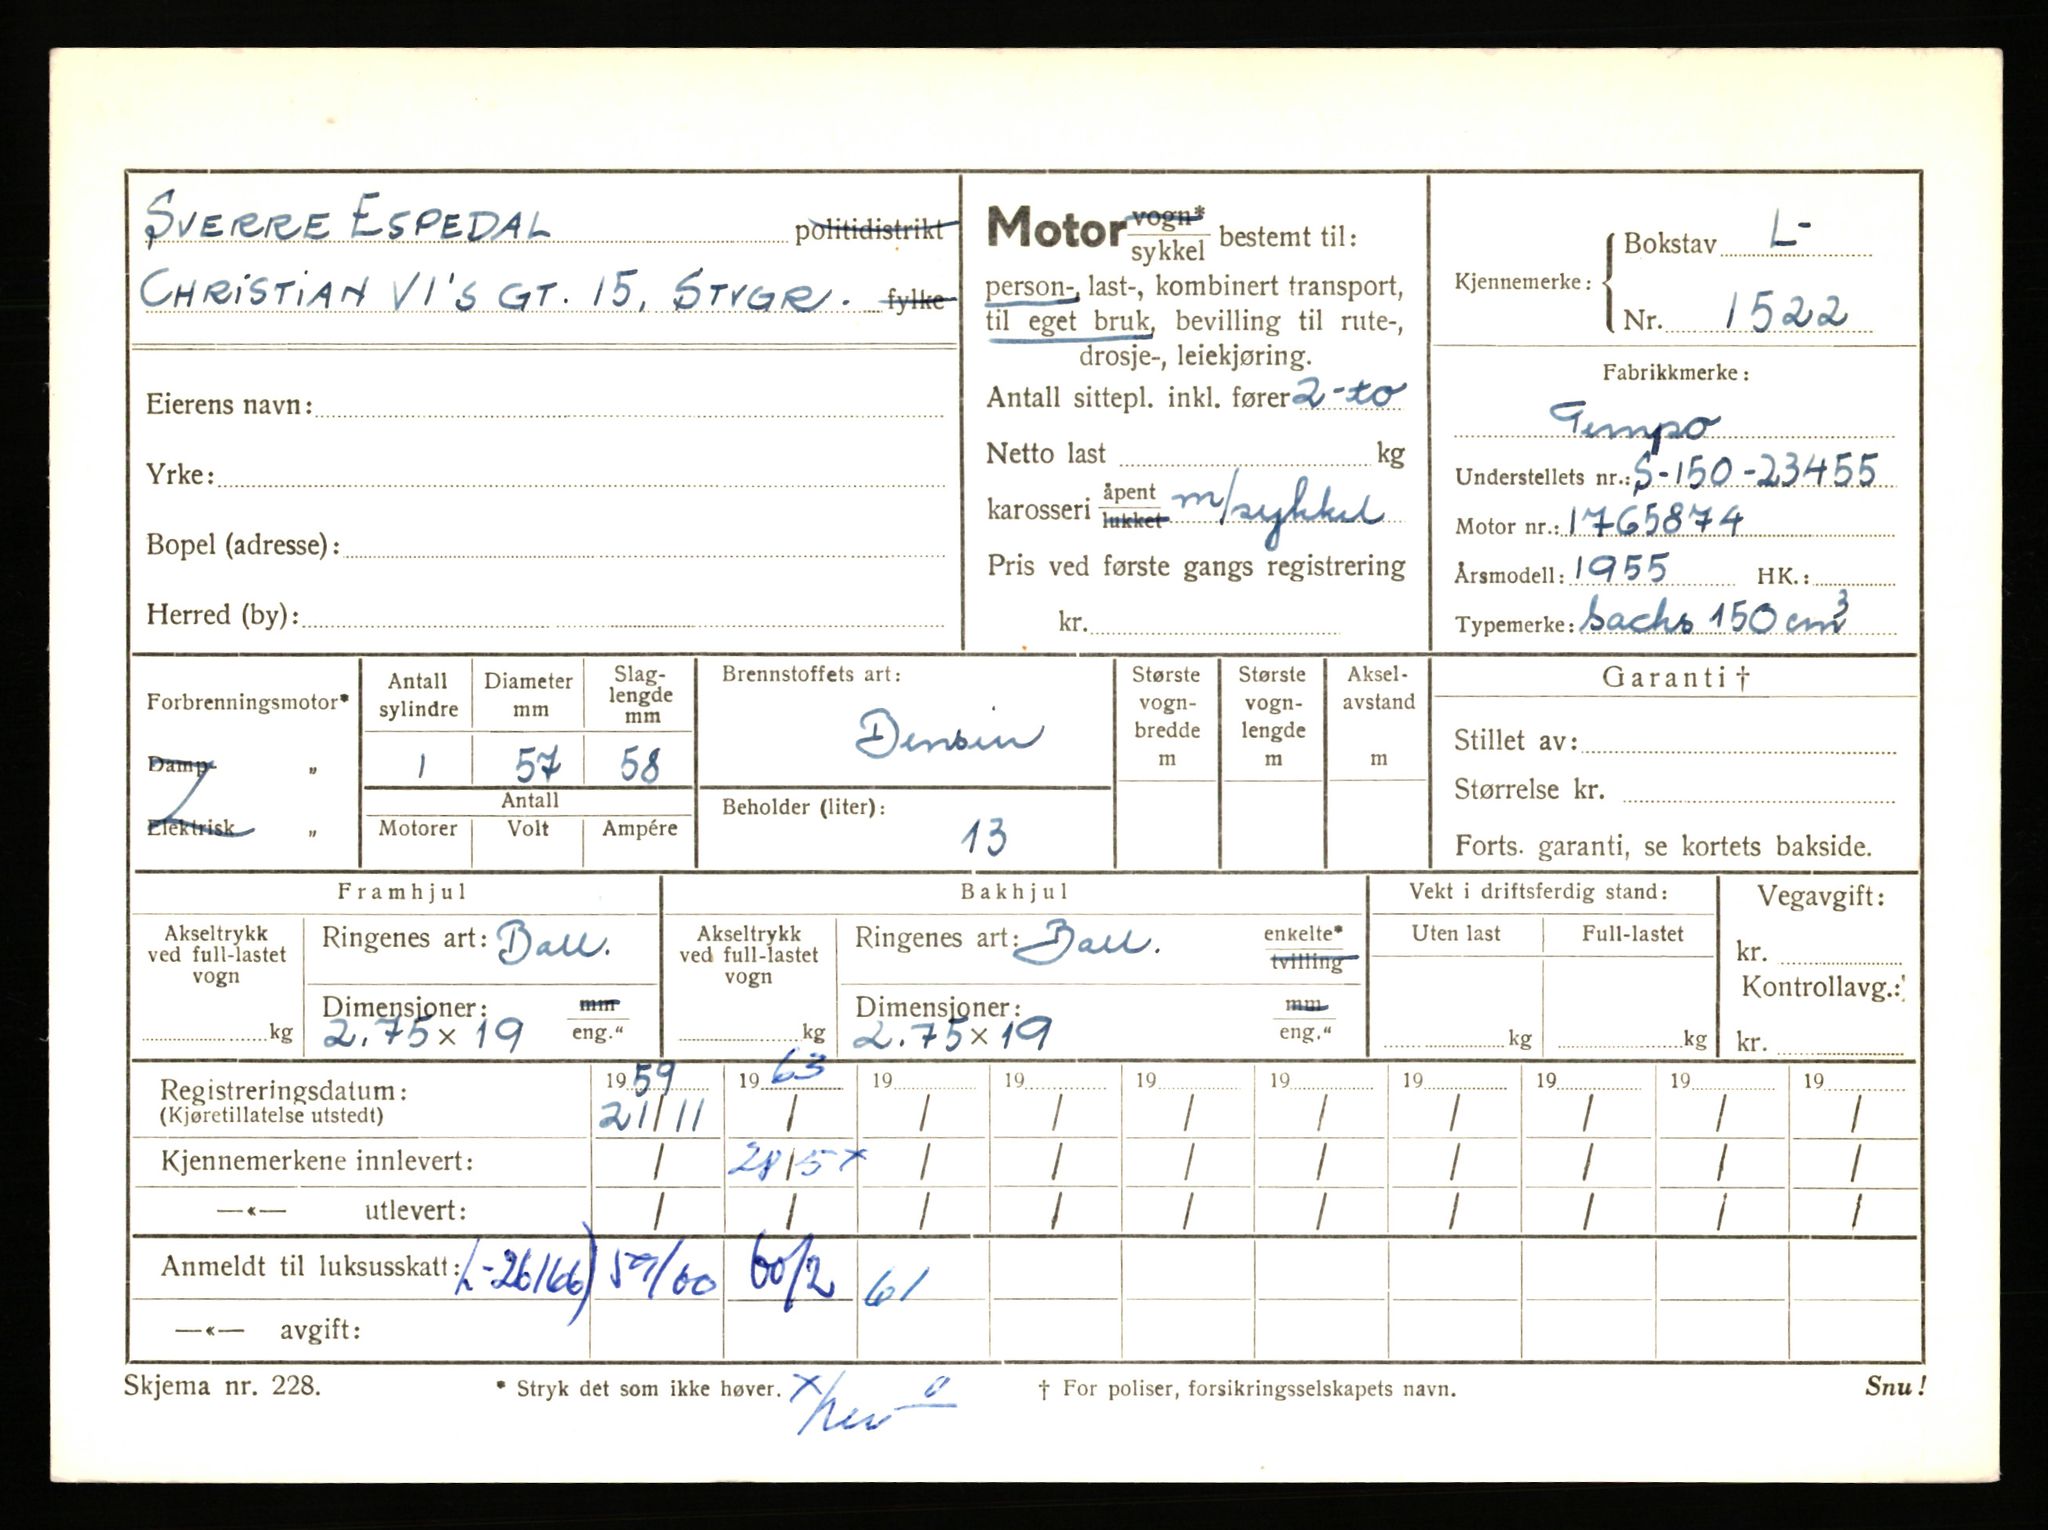 SVERRE ESPEDAL politidistrikt
CHRISTIAN VI'S GT. 15, STVGR. fylke
Eierens navn:
Yrke:
Bopel (adresse):
Herred (by):
Motor vogn* / sykkel bestemt til:
person-, last-, kombinert transport,
til eget bruk, bevilling til rute-,
drosje-, leiekjøring.
Antall sittepl. inkl. fører 2-to
Netto last kg
karosseri åpent / lukket m/sykkel
Pris ved første gangs registrering
kr.
Kjennemerke: Bokstav L-
Nr. 1522
Fabrikkmerke:
Tempo
Understellets nr.: S-150-23455
Motor nr.: 1765874
Årsmodell: 1955 HK.:
Typemerke: Sachs 150 cm³
Forbrenningsmotor*
Damp "
Elektrisk "
Antall sylindre Diameter mm Slag-lengde mm
1 57 58
Antall
Motorer Volt Ampére
Brennstoffets art:
Bensin
Beholder (liter):
13
Største vogn-bredde m
Største vogn-lengde m
Aksel-avstand m
Garanti †
Stillet av:
Størrelse kr.
Forts. garanti, se kortets bakside.
Framhjul
Akseltrykk ved full-lastet vogn
kg
Ringenes art: Ball.
Dimensjoner: mm
2.75 x 19 eng."
Bakhjul
Akseltrykk ved full-lastet vogn
kg
Ringenes art: Ball. enkelte* / tvilling
Dimensjoner: mm
2.75 x 19 eng."
Vekt i driftsferdig stand:
Uten last Full-lastet
kg kg
Vegavgift:
kr.
Kontrollavg.:
kr.
Registreringsdatum: 1959 1963 19 19 19 19 19 19 19 19
(Kjøretillatelse utstedt) 21/11 / / / / / / / / /
Kjennemerkene innlevert: / 28/5 x / / / / / / / /
—«— utlevert: / / / / / / / / / /
Anmeldt til luksusskatt: (L-26166) 59/60 60/2 61
—«— avgift:
Skjema nr. 228. * Stryk det som ikke høver. † For poliser, forsikringsselskapets navn. Snu!